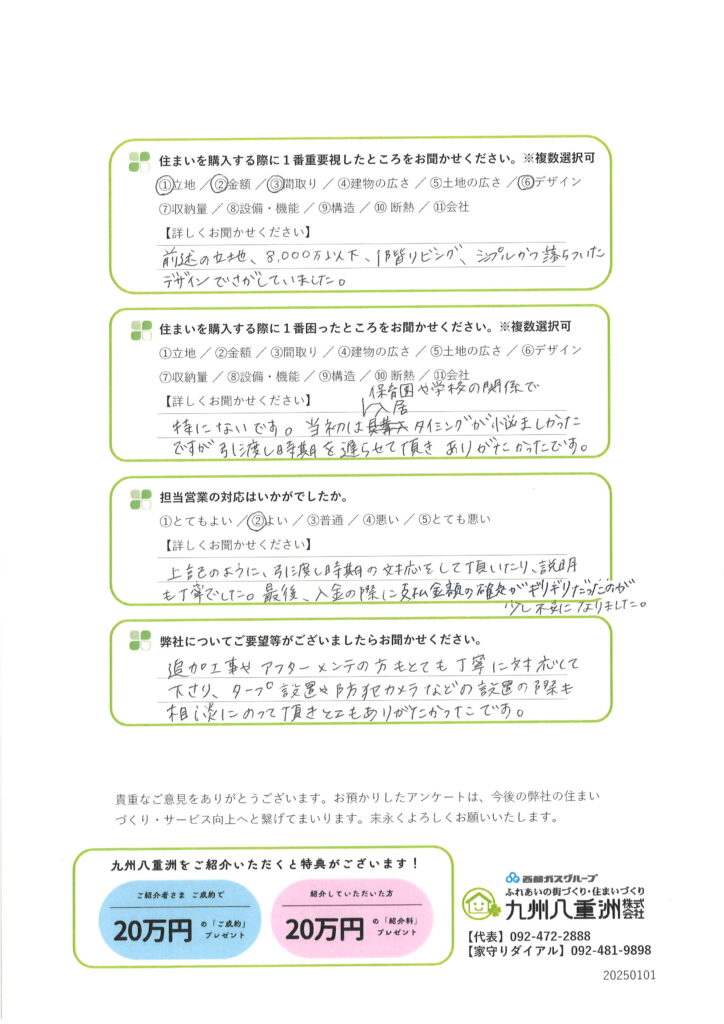 住まいを購入する際に1番重要視したところをお聞かせください。※複数選択可
①立地 ／ ②金額 ／ ③間取り ／ ④建物の広さ ／ ⑤土地の広さ ／ ⑥デザイン
⑦収納量 ／ ⑧設備・機能 ／ ⑨構造 ／ ⑩ 断熱 ／ ⑪会社
【詳しくお聞かせください】
前述の立地、8,000万以下、1階リビング、シンプルかつ落ちついた
デザインでさがしていました。
住まいを購入する際に1番困ったところをお聞かせください。※複数選択可
①立地 ／ ②金額 ／ ③間取り ／ ④建物の広さ ／ ⑤土地の広さ ／ ⑥デザイン
⑦収納量 ／ ⑧設備・機能 ／ ⑨構造 ／ ⑩ 断熱 ／ ⑪会社
【詳しくお聞かせください】
保育園や学校の関係で
入居
特にないです。当初は購入タイミングが悩ましかった
ですが引き渡し時期を遅らせて頂きありがたかったです。
担当営業の対応はいかがでしたか。
①とてもよい ／ ②よい ／ ③普通 ／ ④悪い ／ ⑤とても悪い
【詳しくお聞かせください】
上記のように、引き渡し時期の対応をして頂いたり、説明
も丁寧でした。最後、入金の際に支払金額の確定がギリギリだったのが
少し不安になりました。
弊社についてご要望等がございましたらお聞かせください。
追加工事やアフターメンテの方もとても丁寧に対応して
下さり、タープ設置や防犯カメラなどの設置の際も
相談にのって頂きとてもありがたかったです。
貴重なご意見をありがとうございます。お預かりしたアンケートは、今後の弊社の住まい
づくり・サービス向上へと繋げてまいります。末永くよろしくお願いいたします。
九州八重洲をご紹介いただくと特典がございます！
ご紹介者さま ご成約で
20万円 の「ご成約」プレゼント
紹介していただいた方
20万円 の「紹介料」プレゼント
西部ガスグループ
ふれあいの街づくり・住まいづくり
九州八重洲株式会社
【代表】092-472-2888
【家守りダイアル】092-481-9898
20250101